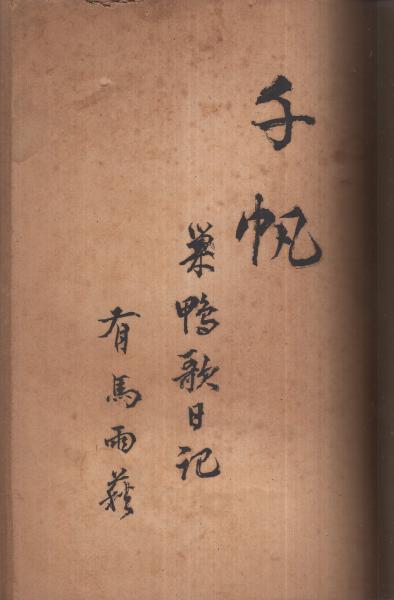 千帆
巣鴨歌日記
有馬雨